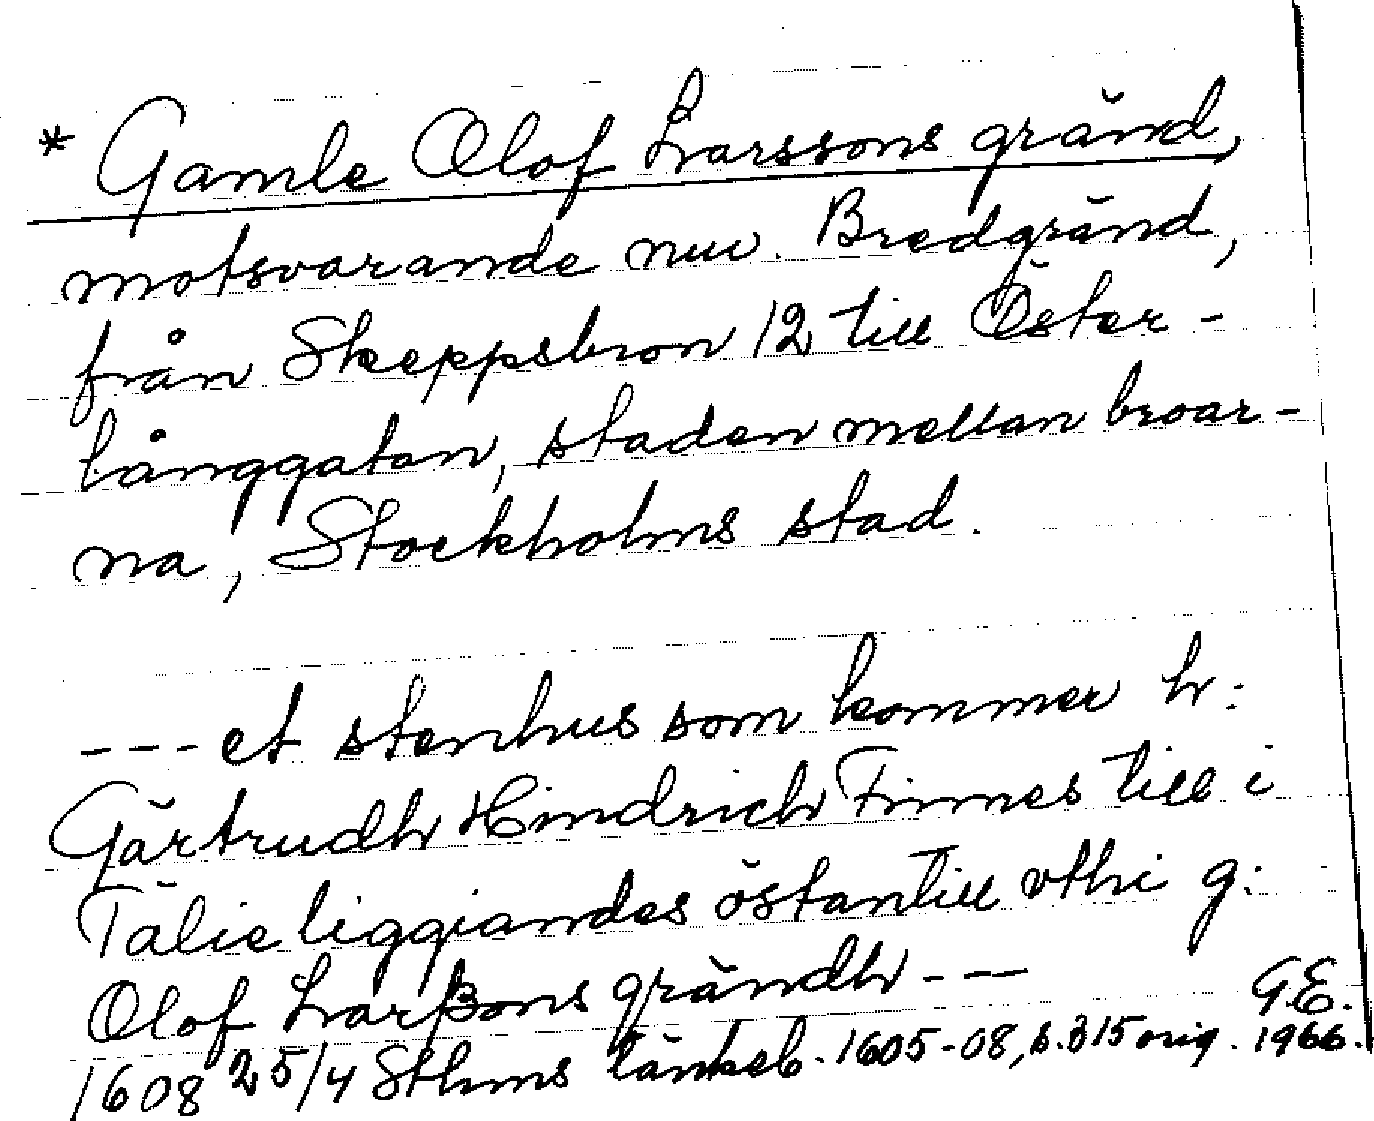 * Gamle Olof Larssons gränd,
motsvarande nuv. Bredgränd,
från Skeppsbron 12 till Öster-
långgatan, staden mellan broar-
na, Stockholms stad.
---et stenhus som kommer h:
Gärtrudh Hindrich Finnes till i
Tälie liggiandes östantill vthi g:
Olof Larßons grändh---
G.E.
1608 25/4 Sthms tänkeb. 1605-08, s. 315 orig. 1966.